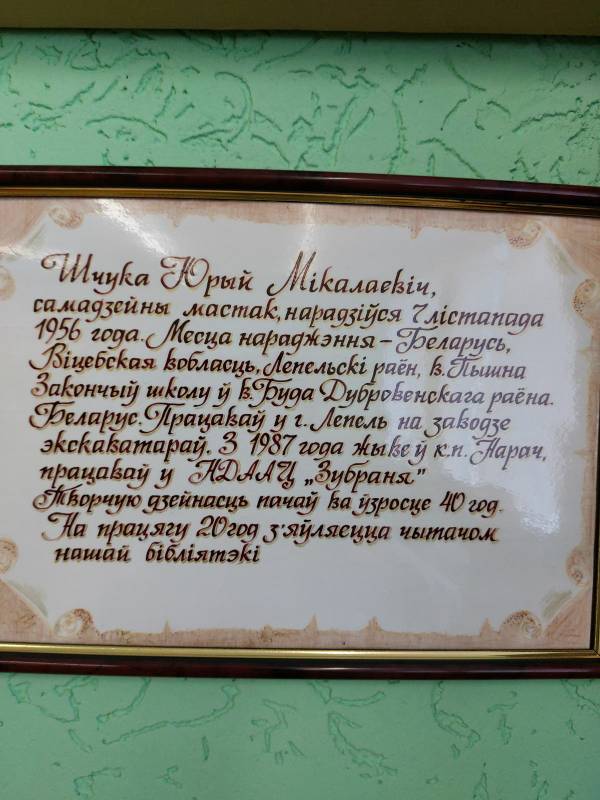 Шчука Юрый Мікалаевіч,
самадзейны мастак, нарадзіўся 7 лістапада
1956 года. Месца нараджэння – Беларусь,
Віцебская вобласць, Лепельскі раён, в. Пышна
Закончыў школу ў в. Буда Дубровенскага раёна.
Беларус. Працаваў у г. Лепель на заводзе
экскаватараў. З 1987 года жыве ў к.п. Нарач,
працаваў у НДААЦ „Зубраня”
Творчую дзейнасць пачаў ва ўзросце 40 год.
На працягу 20 год з'яўляецца чытачом
нашай бібліятэкі